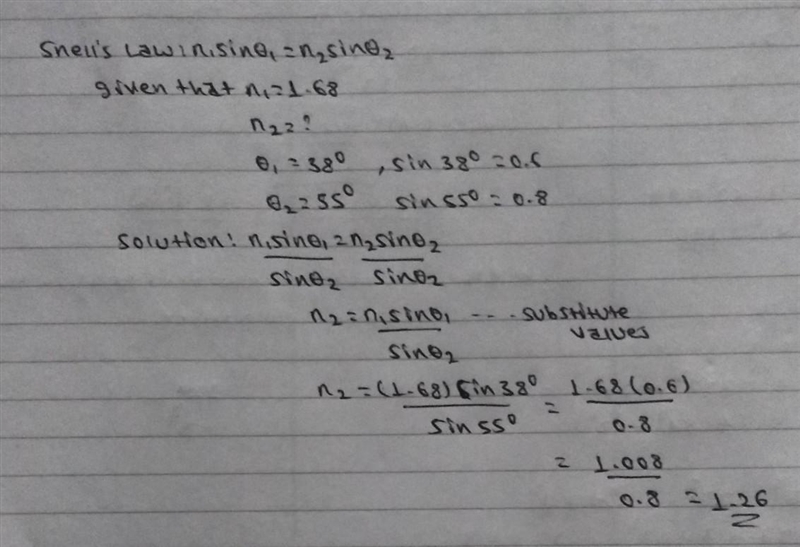 Snell's Law: n₁sinθ₁ = n₂sinθ₂
given that n₁ = 1.68
n₂ = ?
θ₁ = 38° , sin 38° = 0.6
θ₂ = 55° sin 55° = 0.8
Solution: n₁sinθ₁/sinθ₂ = n₂sinθ₂/sinθ₂
n₂ = n₁sinθ₁/sinθ₂ --- substitute values
n₂ = (1.68) sin 38°/sin 55° = 1.68(0.6)/0.8
= 1.008/0.8 = 1.26